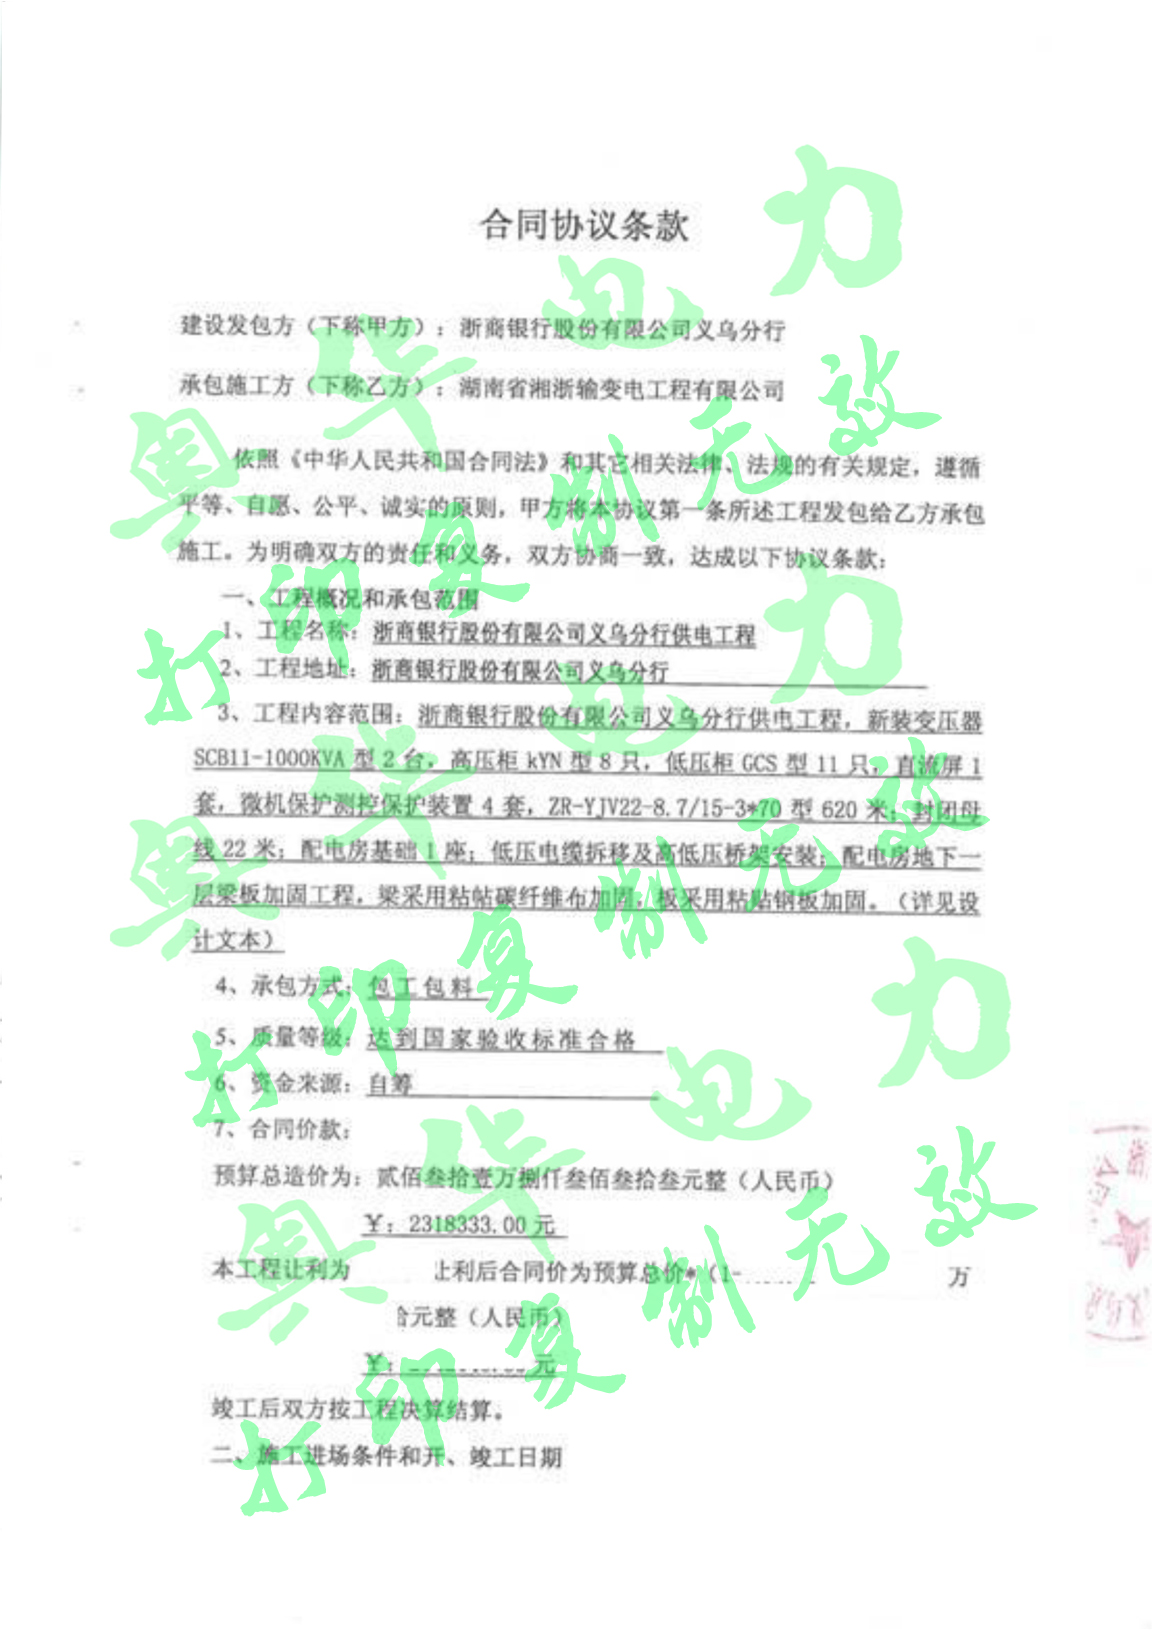 合同协议条款
建设发包方（下称甲方）：浙商银行股份有限公司义乌分行
承包施工方（下称乙方）：湖南省湘浙输变电工程有限公司
依照《中华人民共和国合同法》和其它相关法律、法规的有关规定，遵循
平等、自愿、公平、诚实的原则，甲方将本协议第一条所述工程发包给乙方承包
施工。为明确双方的责任和义务，双方协商一致，达成以下协议条款：
一、工程概况和承包范围
1、工程名称：浙商银行股份有限公司义乌分行供电工程
2、工程地址：浙商银行股份有限公司义乌分行
3、工程内容范围：浙商银行股份有限公司义乌分行供电工程，新装变压器
SCB11-1000KVA 型 2 台，高压柜 kYN 型 8 只，低压柜 GCS 型 11 只，直流屏 1
套，微机保护测控保护装置 4 套，ZR-YJV22-8.7/15-3*70 型 620 米；封闭母
线 22 米；配电房基础 1 座；低压电缆拆移及高低压桥架安装；配电房地下一
层梁板加固工程，梁采用粘帖碳纤维布加固，板采用粘贴钢板加固。（详见设
计文本）
4、承包方式：包工包料
5、质量等级：达到国家验收标准合格
6、资金来源：自筹
7、合同价款：
预算总造价为：贰佰叁拾壹万捌仟叁佰叁拾叁元整（人民币）
￥：2318333.00 元
本工程让利为 让利后合同价为预算总价*（1- 万
元整（人民币）
￥： 元
竣工后双方按工程决算结算。
二、施工进场条件和开、竣工日期
粤华电力
打印复制无效
粤华电力
打印复制无效
粤华电力
打印复制无效